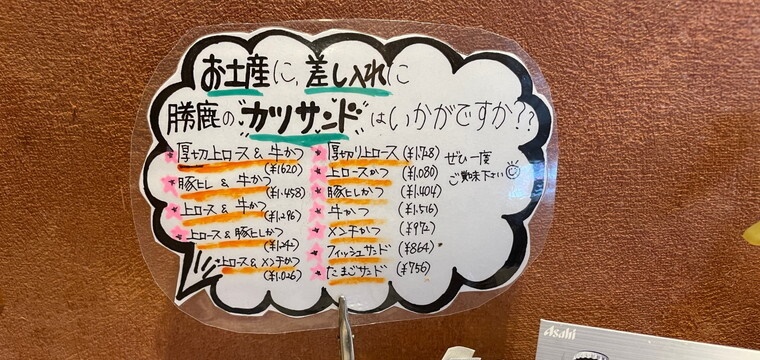 お土産に、差し入れに
勝鹿の"カツサンド"はいかがですか??
厚切上ロース & 牛かつ
(¥1620)
豚ヒレ & 牛かつ
(¥1.458)
上ロース & 牛かつ
(¥1.296)
上ロース & 豚ヒレかつ
(¥1.242)
上ロース & メンチかつ
(¥1.026)
厚切り上ロース (¥1.728)
上ロースかつ (¥1.080)
豚ヒレかつ (¥1.404)
牛かつ (¥1.516)
メンチかつ (¥972)
フィッシュサンド (¥864)
たまごサンド (¥756)
ぜひ一度
ご賞味下さい
Asahi